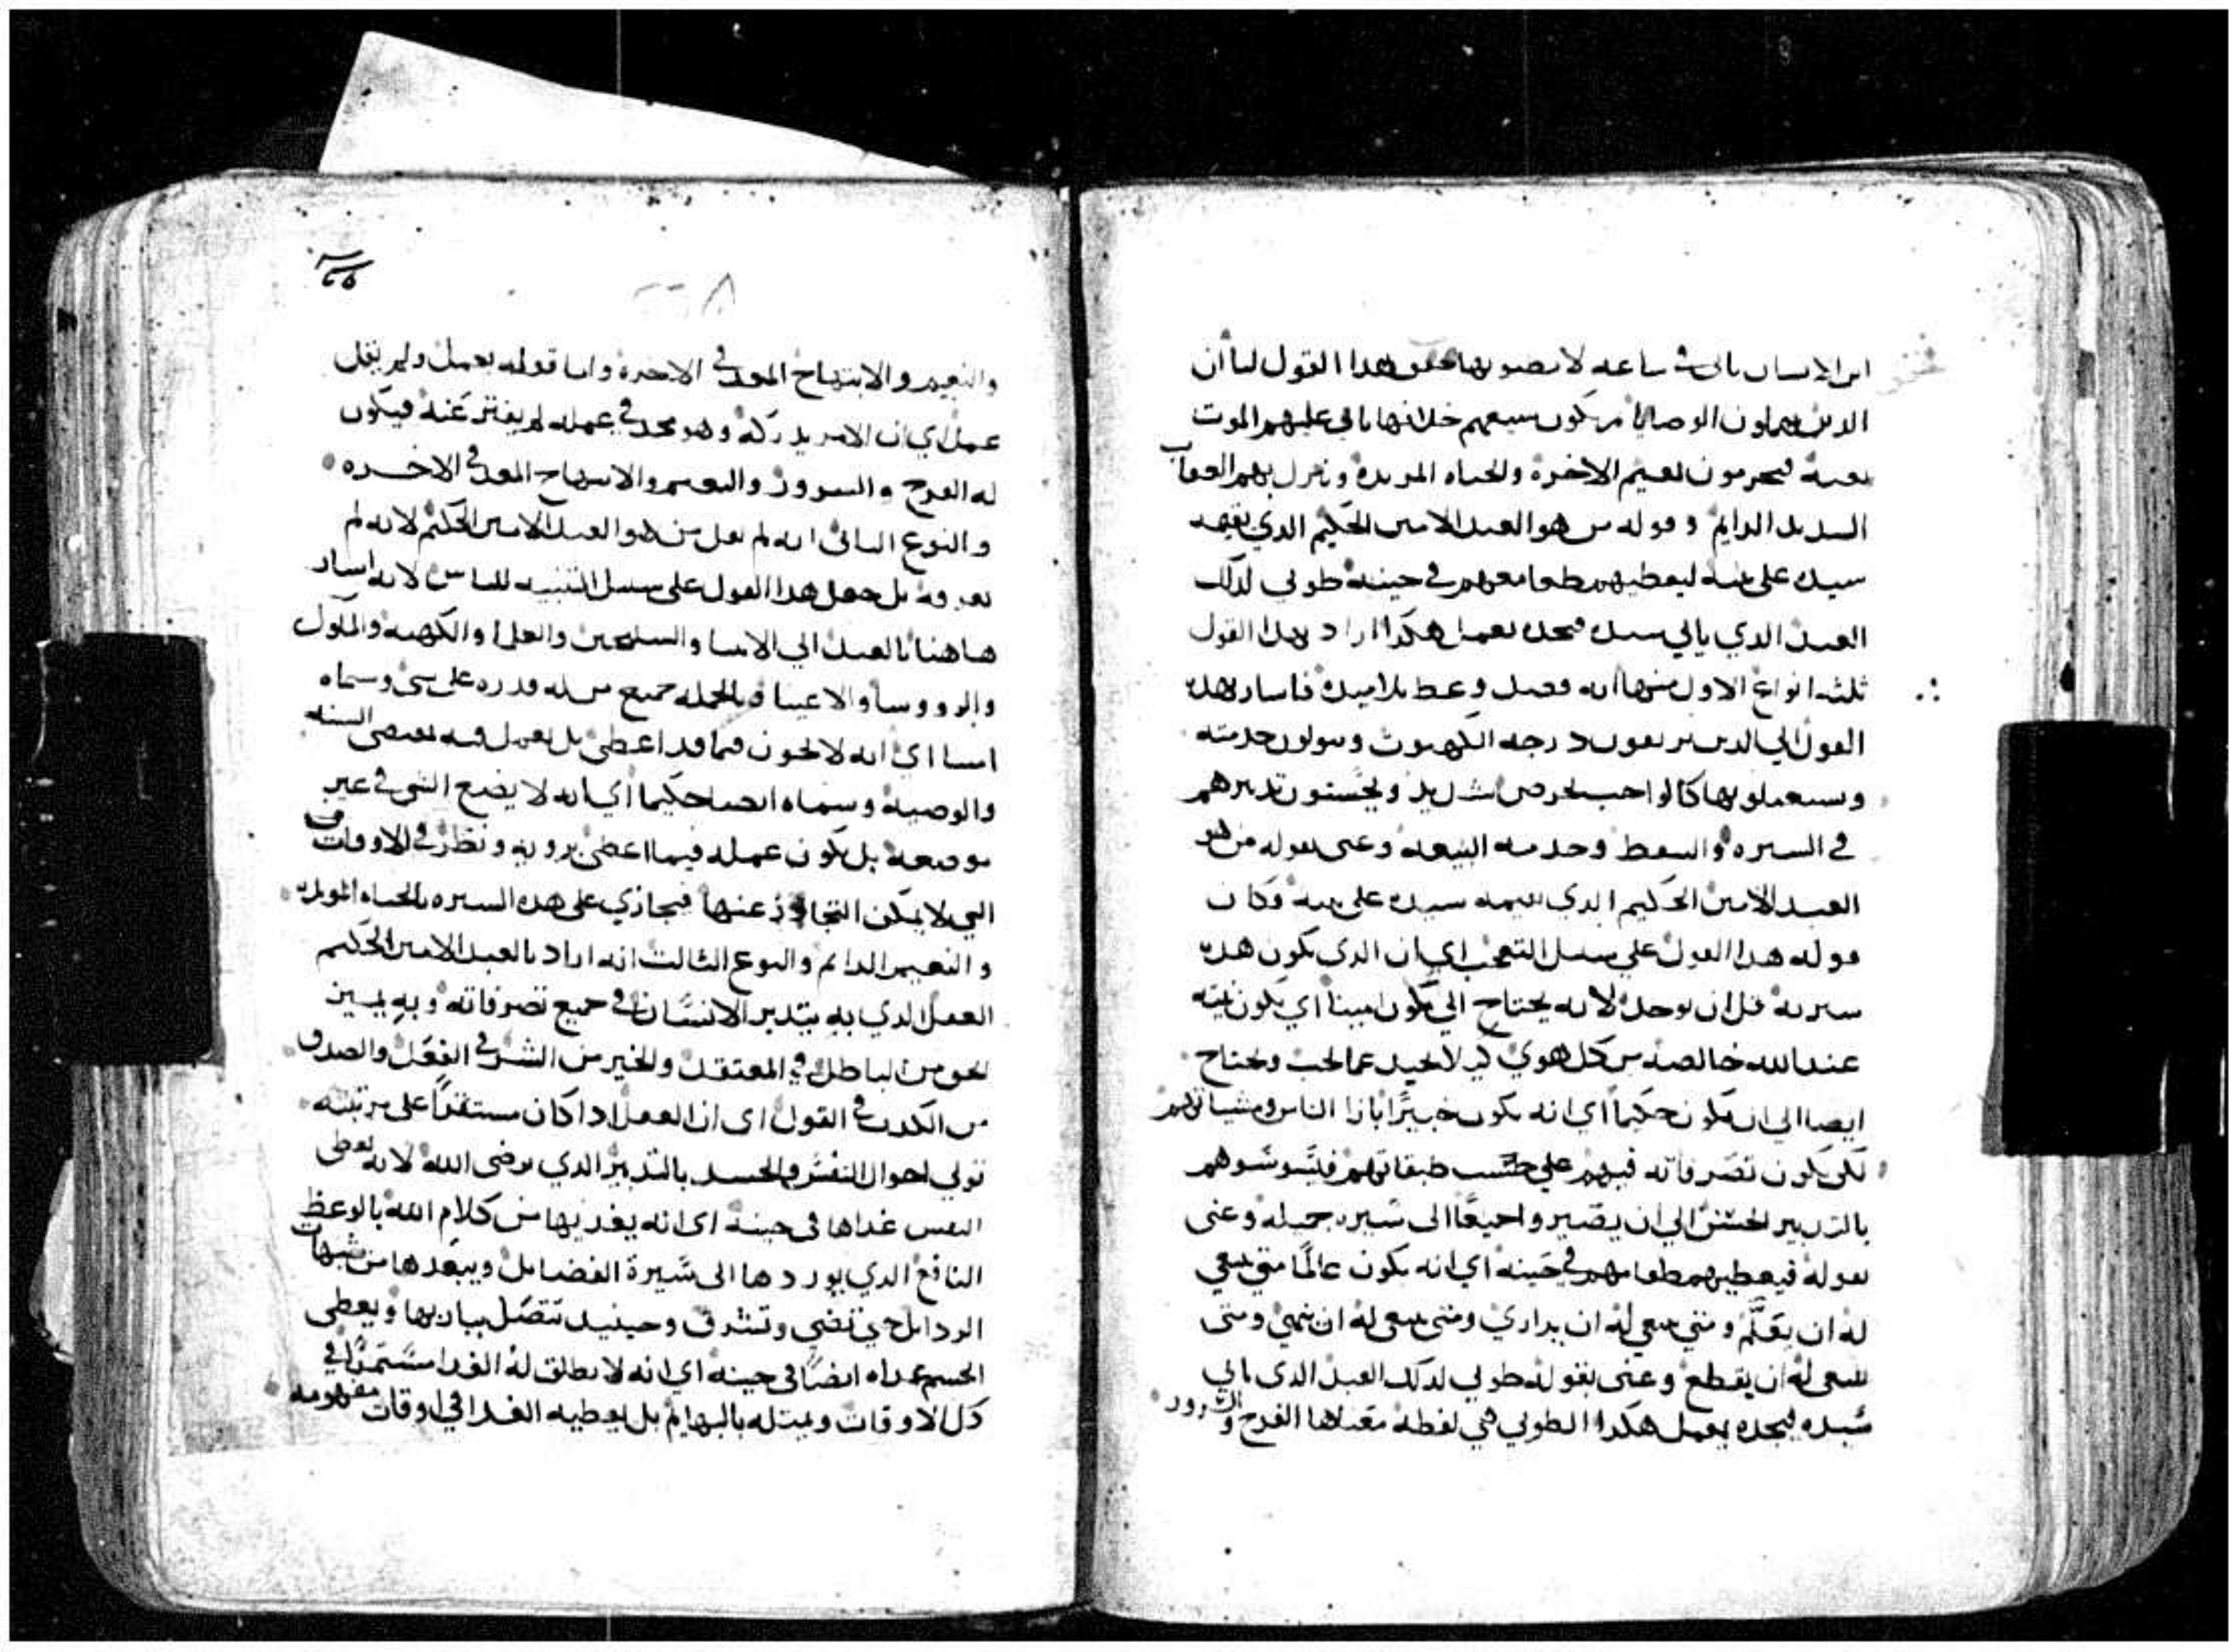 ابن الانسان ياتي في ساعه لا تصنوبها هذا القول لنا أن
الدين يهملون الوصايا من يكون سعيهم خلافها ياتي عليهم الموت
بغتة فيحرمون نعيم الاخرة والحياه المويدة وينزل بهم العقاب
السديد الدايم وقوله من هو العبد الامين الحكيم الذي يقيمه
سيده على بيته ليعطيهم طعامهم في حينه طوبى لدلك
العبد الدي ياتي سيده فيجده يعمل هكدا اراد بهدا القول
ثلثه انواع الاول منها انه قصد وعظ تلاميده فاسار بهده
القول الي الدين يرتقون درجه الكهنوت ويتولون خدمته
ويستعملونها كالواجب بحرص شديد ويحسنون تدبيرهم
في السيره والوعظ وخدمه البيعة وعنى بقوله من هو
العبد الامين الحكيم الدي يقيمه سيده على بيته وكان
قوله هدا القول علي سبيل التعجب اي ان الدي يكون هده
سيرته قل ان يوجد لانه يحتاج الي يكون امينا اي يكون نيته
عند الله خالصه من كل هوي لا يحيد عما يجب ويحتاج
ايضا الي ان يكون حكيما اي انه يكون خبيرًا بارا الناس ومشياتهم
لكي يكون تصرفاته فيهم علي حسب طبقاتهم فيسوسوهم
بالتدبير الحسن الي ان يصيروا جميعًا الى سيره جميله وعنى
بقوله فيعطيهم طعامهم في حينه اي انه يكون عالمًا متي ينبغي
له ان يعلّم ومتي ينبغي له ان يداري ومتي ينبغي له ان ومتي
ينبغي له ان يقطع وعنى بقوله طوبي لدلك العبد الدي ياتي
سيده فيجده يعمل هكدا الطوبي هي لفظة معناها الفرح والسرور
والنعيم والابتهاج المعد في الاخرة واما قوله يعمل ولم يقل
عمل اي ان الامر يدركه وهو مجد في عمله لم يفتر عنه فيكون
له الفرح والسرور والنعيم والابتهاج المعد في الاخره
والنوع التاني انه لم يقل من هو العبد الامين الحكيم لانه لم
يعرفه بل جعل هدا القول على سبيل التنبيه للناس لانه اسار
هاهنا بالعبد الي الانبيا والسليحين والعلما والكهنه والملوك
والرووسا والاغنيا وبالجمله جميع من له قدره على شي وسماه
امينا اي انه لا يخون فيما قد اعطي بل يعمل فيه بمقتضى السنه
والوصية وسماه ايضا حكيما اي انه لا يضع الشي في غير
موضعه بل يكون عمله فيما اعطي بروية ونظر في الاوقات
التي لا يمكن التجاوز عنها فيجازي على هده السيره بالحياه الموبده
والنعيم الدايم والنوع الثالث انه اراد بالعبد الامين الحكيم
العقل الدي به يتدبر الانسان في جميع تصرفاته وبه يميز
الحق من الباطل في المعتقد والخير من الشر في الفعل والصدق
من الكدب في القول اي ان العقل ادا كان مستقرًا على مرتبته
تولي احوال النفس والجسد بالتدبير الدي يرضى الله لانه يعطي
النفس غداها في حينه اي انه يغديها من كلام الله بالوعظ
النافع الدي يوردها الى سيرة الفضايل ويبعدها من شبهات
الردايل حتي تضي وتشرق وحينيد تتصل بباريها ويعطي
الجسم غداه ايضًا في حينه اي انه لا يطلق له الغدا مستمرًا في
كل الاوقات ويمتله بالبهايم بل يعطيه الغدا في اوقات مفهومه